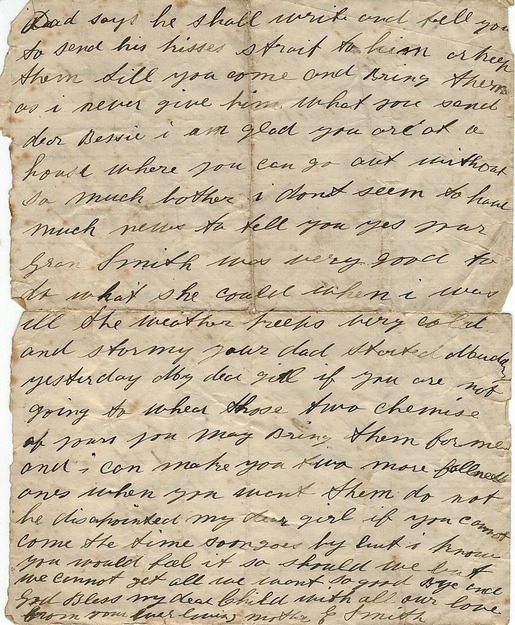 Dad says he shall write and tell you
to send his kisses strait to him or keep
them till you come and Bring them
as i never give him what you send
dear Bessie i am glad you are at a
house where you can go out without
so much bother i dont seem to have
much news to tell you yes your
Gran Smith was very good to
do what she could when i was
ill the weather keeps very cold
and stormy your dad started
yesterday My dear girl if you are not
going to whear those two chemise
of yours you May Bring them for me
and i can make you two more
ones when you want them do not
be disapointed my dear girl if you cannot
come the time soon goes by but i know
you would feel it so should we but
we cannot get all we want so good Bye and
God Bless my dear Child with all our love
from your ever loving mother E Smith